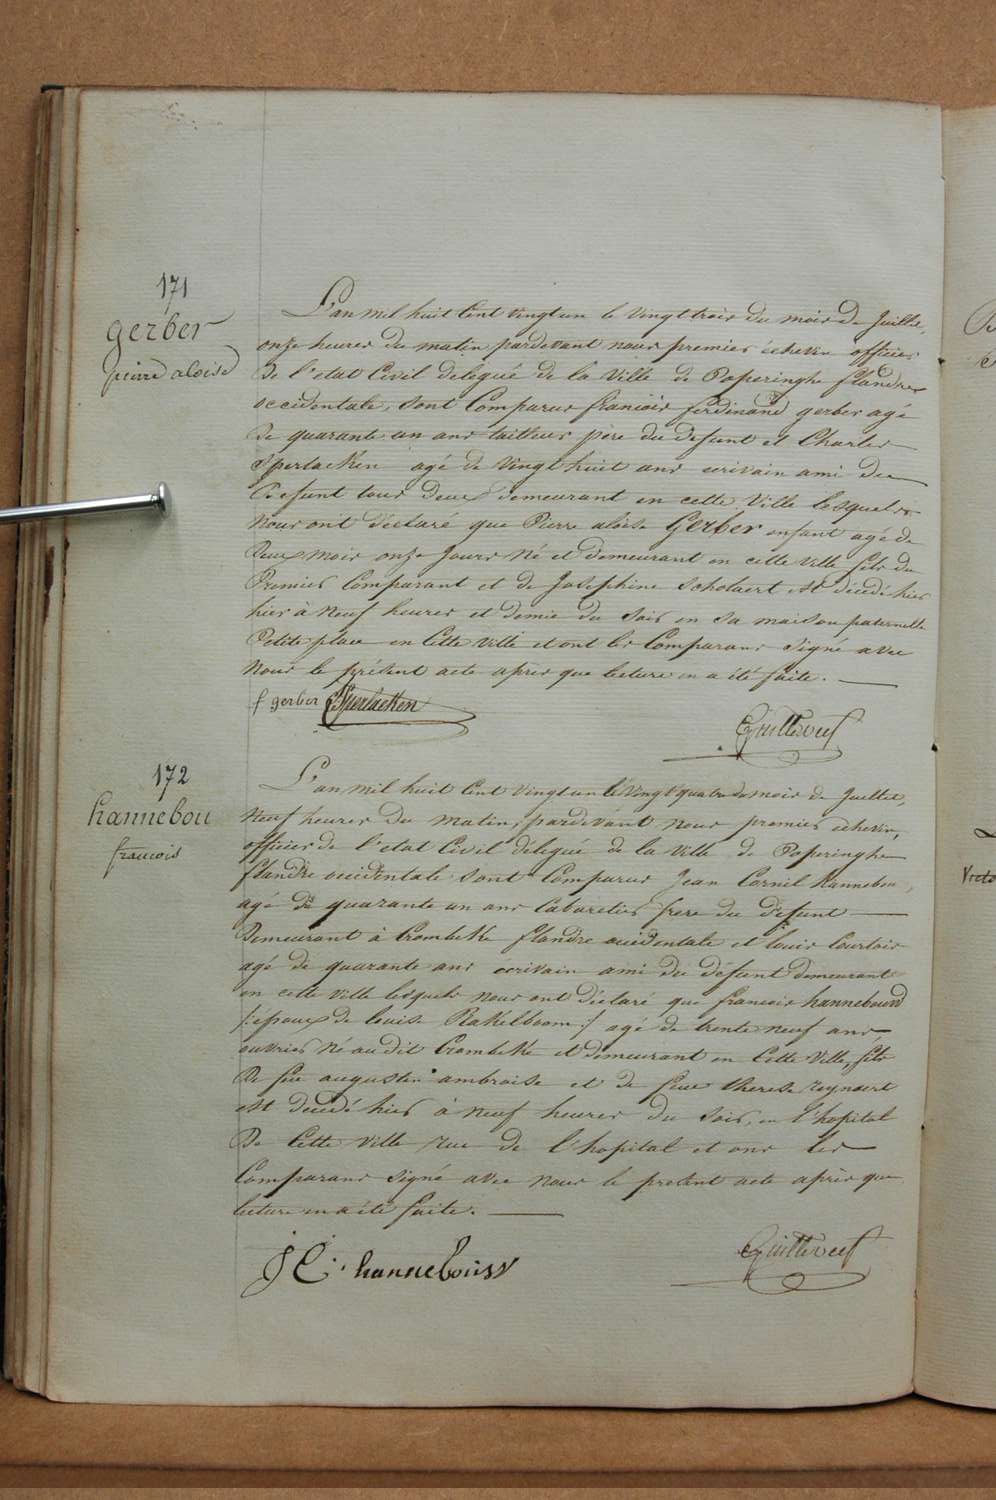 171
gerber
pierre aloise
L'an mil huit Cent vingt un le vingt trois du mois de Juillet,
onze heures du matin pardevant nous premier échevin officier
De l'etat Civil delegué de la Ville de Poperinghe flandre
occidentale, sont Comparus francois ferdinand gerber agé
De quarante un ans tailleur père du defunt et Charles
Sperlacken agé de Vingt huit ans ecrivain ami du
Defunt tous deux demeurant en cette Ville lesquels
Nous ont déclaré que Pierre aloise Gerber enfant agé de
Deux mois onze Jours né et demeurant en cette Ville fils du
Premier Comparant et de Josephine Scholaert est décédé hier
hier à Neuf heures et demie du soir en sa maison paternelle
Petite place en Cette Ville et ont les Comparans Signé avec
Nous le présent acte apres que lecture en a été faite.
f gerber Sperlacken
172
hannebou
francois
L'an mil huit Cent vingt un le vingt quatre du mois de Juillet,
Neuf heures du matin, pardevant nous premier échevin,
officier de l'etat Civil délegué de la Ville de Poperinghe
flandre occidentale sont Comparus Jean Cornil hannebou,
agé de quarante un ans Cabaretier frere du défunt
Demeurant à Crombeke flandre occidentale et louis Courtois
agé de quarante ans écrivain ami du défunt demeurant
en cette ville lesquels nous ont déclaré que francois hannebouw
/:epoux de louise Rakelboom:/ agé de trente neuf ans,
ouvrier Né au dit Crombeke et demeurant en Cette Ville, fils
De feu augustin ambroise et de feue therese reynaert
est decedé hier à Neuf heures du Soir, en l'hopital
De Cette Ville rue de l'hopital et ont les
Comparans Signé avec nous le present acte après que
lecture en a été faite.
J C: hannebouw